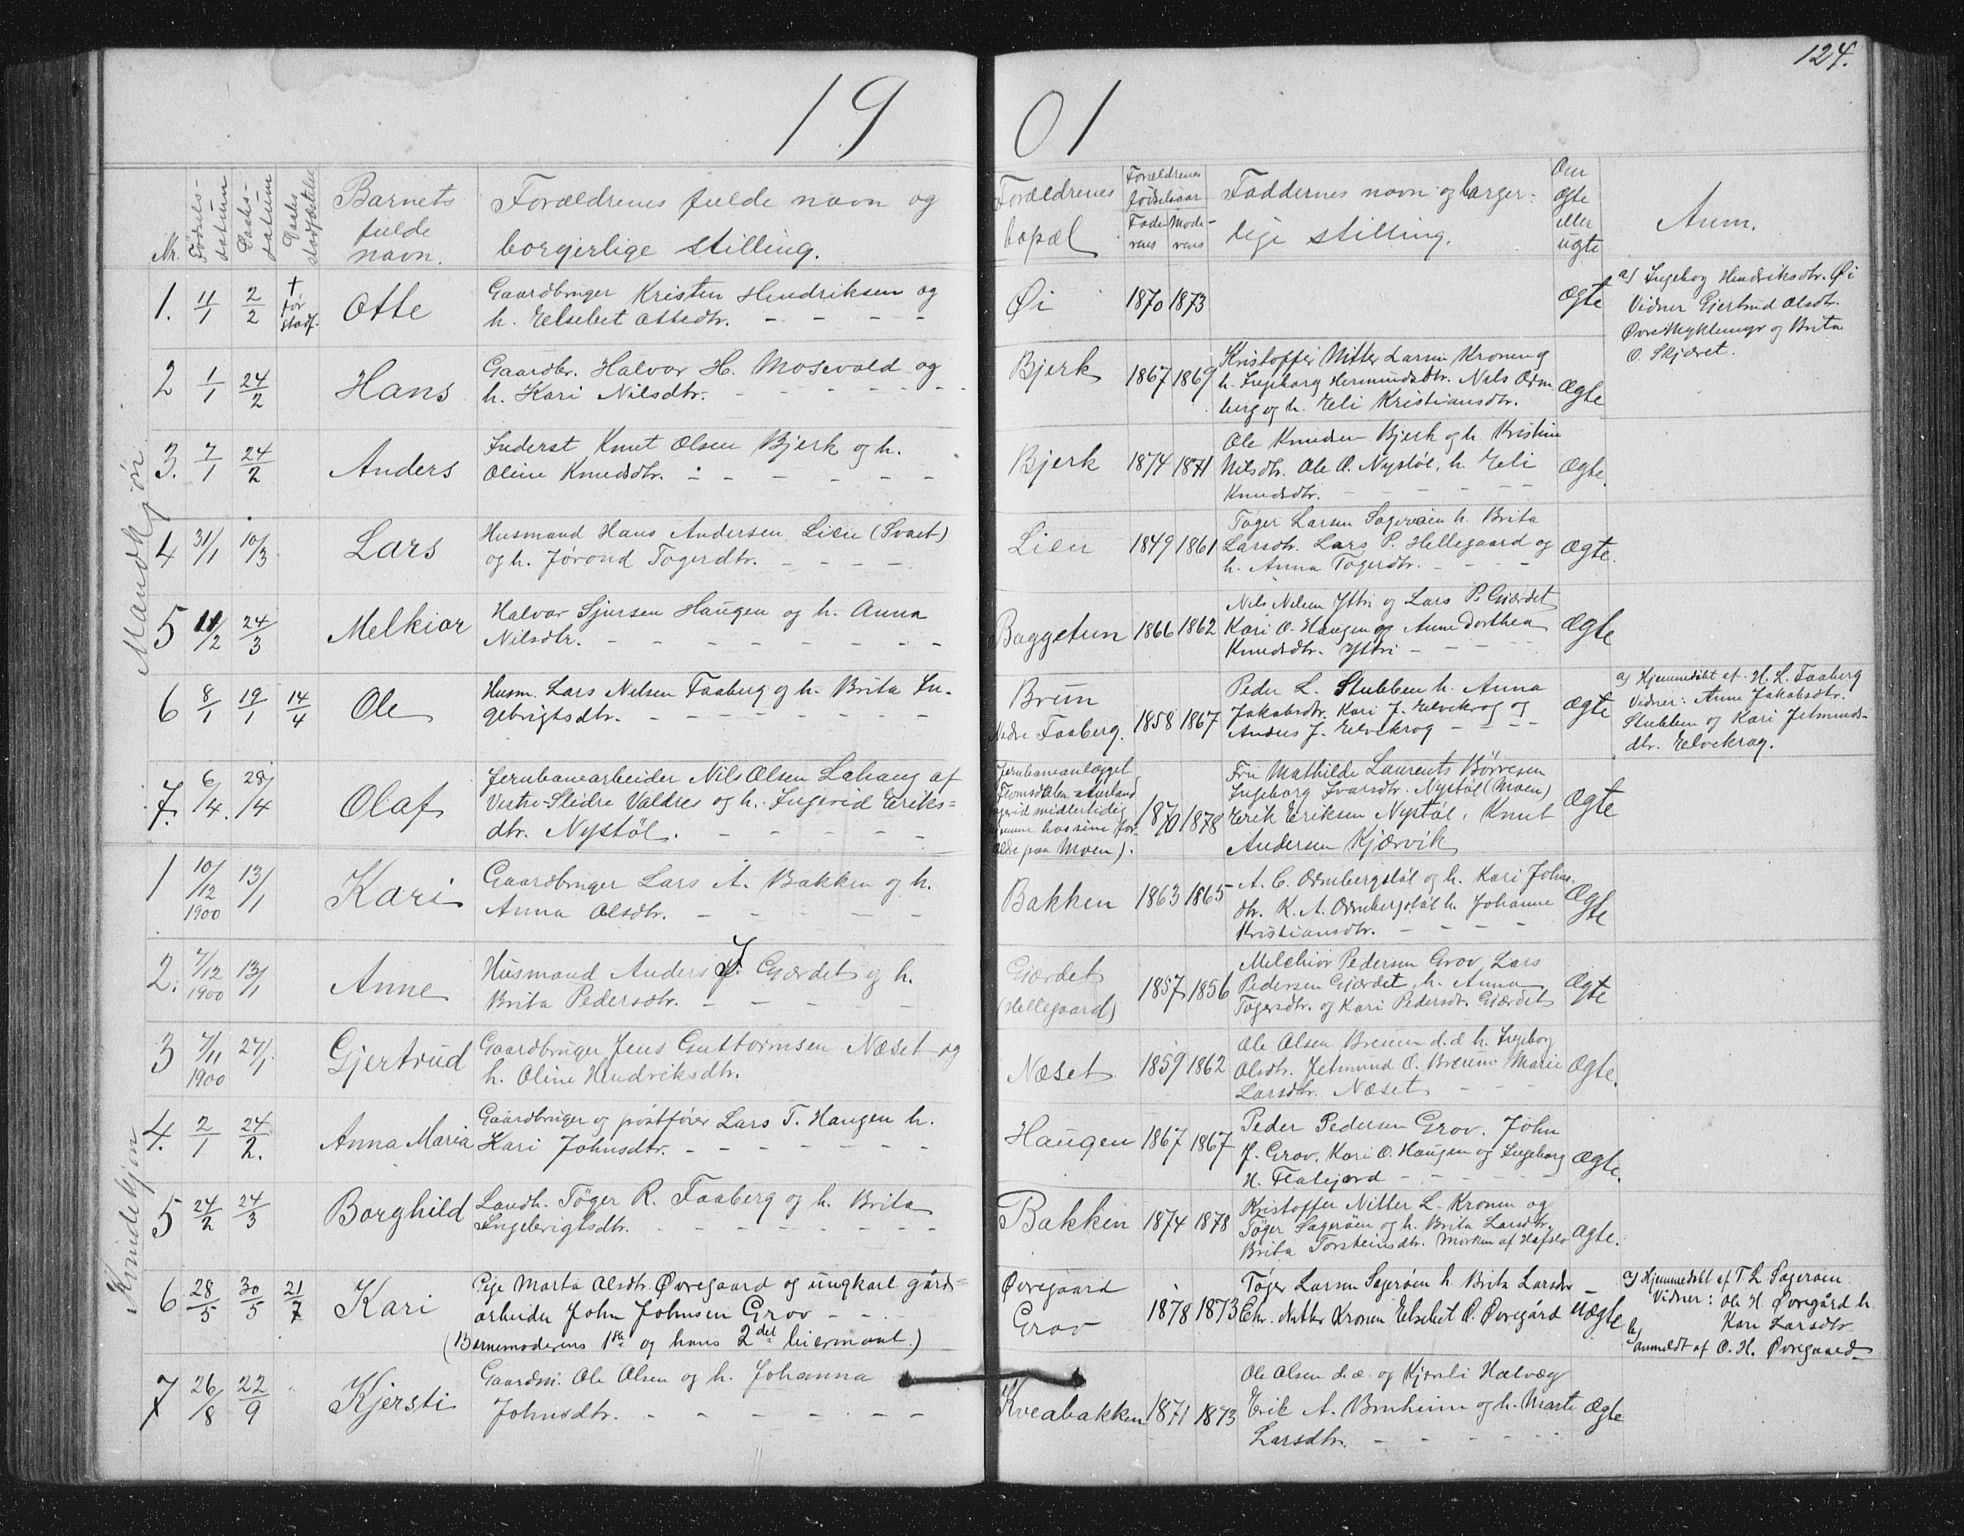 124.
19 01
Nr.
Fødsels-
datum
Daabs-
datum
Daabs
stadfæstelse
Barnets
fulde
navn.
Forældrenes fulde navn og
borgerlige stilling.
Forældrenes
bopæl
Forældrenes
fødselsaar
Fade-
rens
Mode-
rens
Faddernes navn og borger-
lige stilling.
Om
ægte
eller
uægte
Anm.
Mandkjøn.
1. 4/1 2/2 † før stadf. Otte
Gaardbruger Kristen Hendriksen og
h. Elsebet Ottedtr. - - - -
Øi 1870 1873 Ægte
a) Ingebog Hendriksdtr. Øi
Vidner Gjertrud Olsdtr.
Øvre Myklemyr og Brita
O. Skjæret.
2 1/1 24/2 Hans
Gaardbr. Halvor H. Mosevold og
h. Kari Nilsdtr. - - - - -
Bjerk 1867 1869
Kristoffer Nitter Larsen Kronen og
h. Ingeborg Hermundsdtr. Nils Odm
berg og h. Eli Kristiansdtr.
Ægte
3. 7/1 24/2 Anders
Inderst Knut Olsen Bjerk og h.
Oline Knudsdtr. - - - - -
Bjerk 1874 1871
Ole Knudsen Bjerk og h. Kristine
Nilsdtr. Ole O. Nystøl, h. Eli
Knudsdtr. - - - - -
Ægte.
4 31/1 10/3 Lars
Husmand Hans Andersen Lien (Svaet)
og h. Jørond Tøgerdtr. - - - -
Lien 1849 1861
Tøger Larsen Sagerøen h. Brita
Larsdtr. Lars P. Hellegaard og
h. Anna Tøgerdtr. - - - -
Ægte.
5 11/2 24/3 Melkior
Halvor Sjursen Haugen og h. Anna
Nilsdtr. - - - - - -
Baggetun 1866 1862
Nils Nilsen Yttri og Lars P. Gjærdet
Kari O. Haugen og Anne Dorthea
Knudsdtr. Yttri - - - -
Ægte
6 8/1 19/1 14/4 Ole
Husm. Lars Nelsen Faaberg og h. Brita In-
gebrigtsdtr. - - - - - -
Brun
Nedre Faaberg. 1858 1867
Peder L. Stubben h. Anna
Jakobsdtr. Kari J. Elvekrog og
Anders J. Elvekrog - - -
Ægte
a) Hjemmedøbt af H. L. Faaberg
Vidner: Anne Jakobsdtr.
Stubben og Kari Jetmunds-
dtr. Elvekrog.
7. 6/4. 28/4 Olaf
Jernbanearbeider Nils Olsen Lahaug af
Vestre Slidre Valdres og h. Ingerid Eriks-
dtr. Nystøl. - - - -
Jernbaneanlægget
Flomsdalen Aurland
Ingerid midlertidig
hjemme hos sine For-
ældre paa Moen). 1870 1878
Fru Mathilde Laurents Børresen
Ingeborg Ivarsdtr. Nystøl (Moen)
Erik Eriksen Nystøl, Knut
Andersen Kjærvik
Ægte
Kvindekjøn
1 10/12 1900 13/1 Kari
Gaardbruger Lars A. Bakken og h.
Anna Olsdtr. - - - -
Bakken 1863 1865
A. C. Odmbergstøl og h. Kari Johns-
dtr. K. A. Odmbergstøl h. Johanne
Kristiansdtr. - - - -
Ægte
2. 7/12 1900 13/1 Anne
Husmand Anders J. Gjærdet og h.
Brita Pedersdtr. - - - -
Gjærdet
(Hellegaard) 1857 1856
Melchior Pedersen Grov, Lars
Pedersen Gjærdet, h. Anna
Tøgersdtr. og Kari Pedersdtr. Gjærdet
Ægte
3 7/11 1900 27/1 Gjertrud
Gaardbruger Jens Guttormsen Næset og
h. Oline Hendriksdtr.
Næset 1859 1862
Ole Olsen Breum d.d h. Ingeborg
Olsdtr. Jetmund O. Breum Marie
Larsdtr. Næset - - -
Ægte.
4. 2/1 24/2. Anna Maria
Gaardbruger og postfører Lars T. Haugen h.
Kari Johnsdtr. - - - - -
Haugen 1867 1867
Peder Pedersen Grov. John
J. Grov. Kari O. Haugen og Ingeborg
H. Flatejord - - - -
Ægte.
5 24/2 24/3 Borghild
Landh. Tøger R. Faaberg og h. Brita
Ingebrigtsdtr. - - - - - -
Bakken 1874 1878
Kristoffer Nitter L. Kronen og
Tøger Sagerøen og h. Brita Larsdtr.
Brita Torsteinsdtr. Morken af Hafslo
Ægte.
6 28/5 30/5 21/7 Kari
Pige Marta Olsdtr. Øvregaard og ungkarl gårds-
arbeider John Johnsen Grov - - -
(Barnemoderens 1ste og hans 2det leiermaal.)
Øvregaard
Grov 1878 1873
Tøger Larsen Sagerøen h. Brita Larsdtr
Chr. Nitter Kronen Elsebet O. Øvregård
uægte
a) Hjemmedøbt af T. L. Sagerøen.
Vidner: Ole H. Øvregård h.
Kari Larsdtr.
b) anmeldt af O. H. Øvregaard
7 26/8 22/9 Kjersti
Gaardm. Ole Olsen og h. Johanna
Johnsdtr. - - - - - -
Kveabakken 1871 1873
Ole Olsen d.æ. og Kjersti Hatvæg
Erik A. Bruheim og h. Marte
Larsdtr. - - - -
Ægte